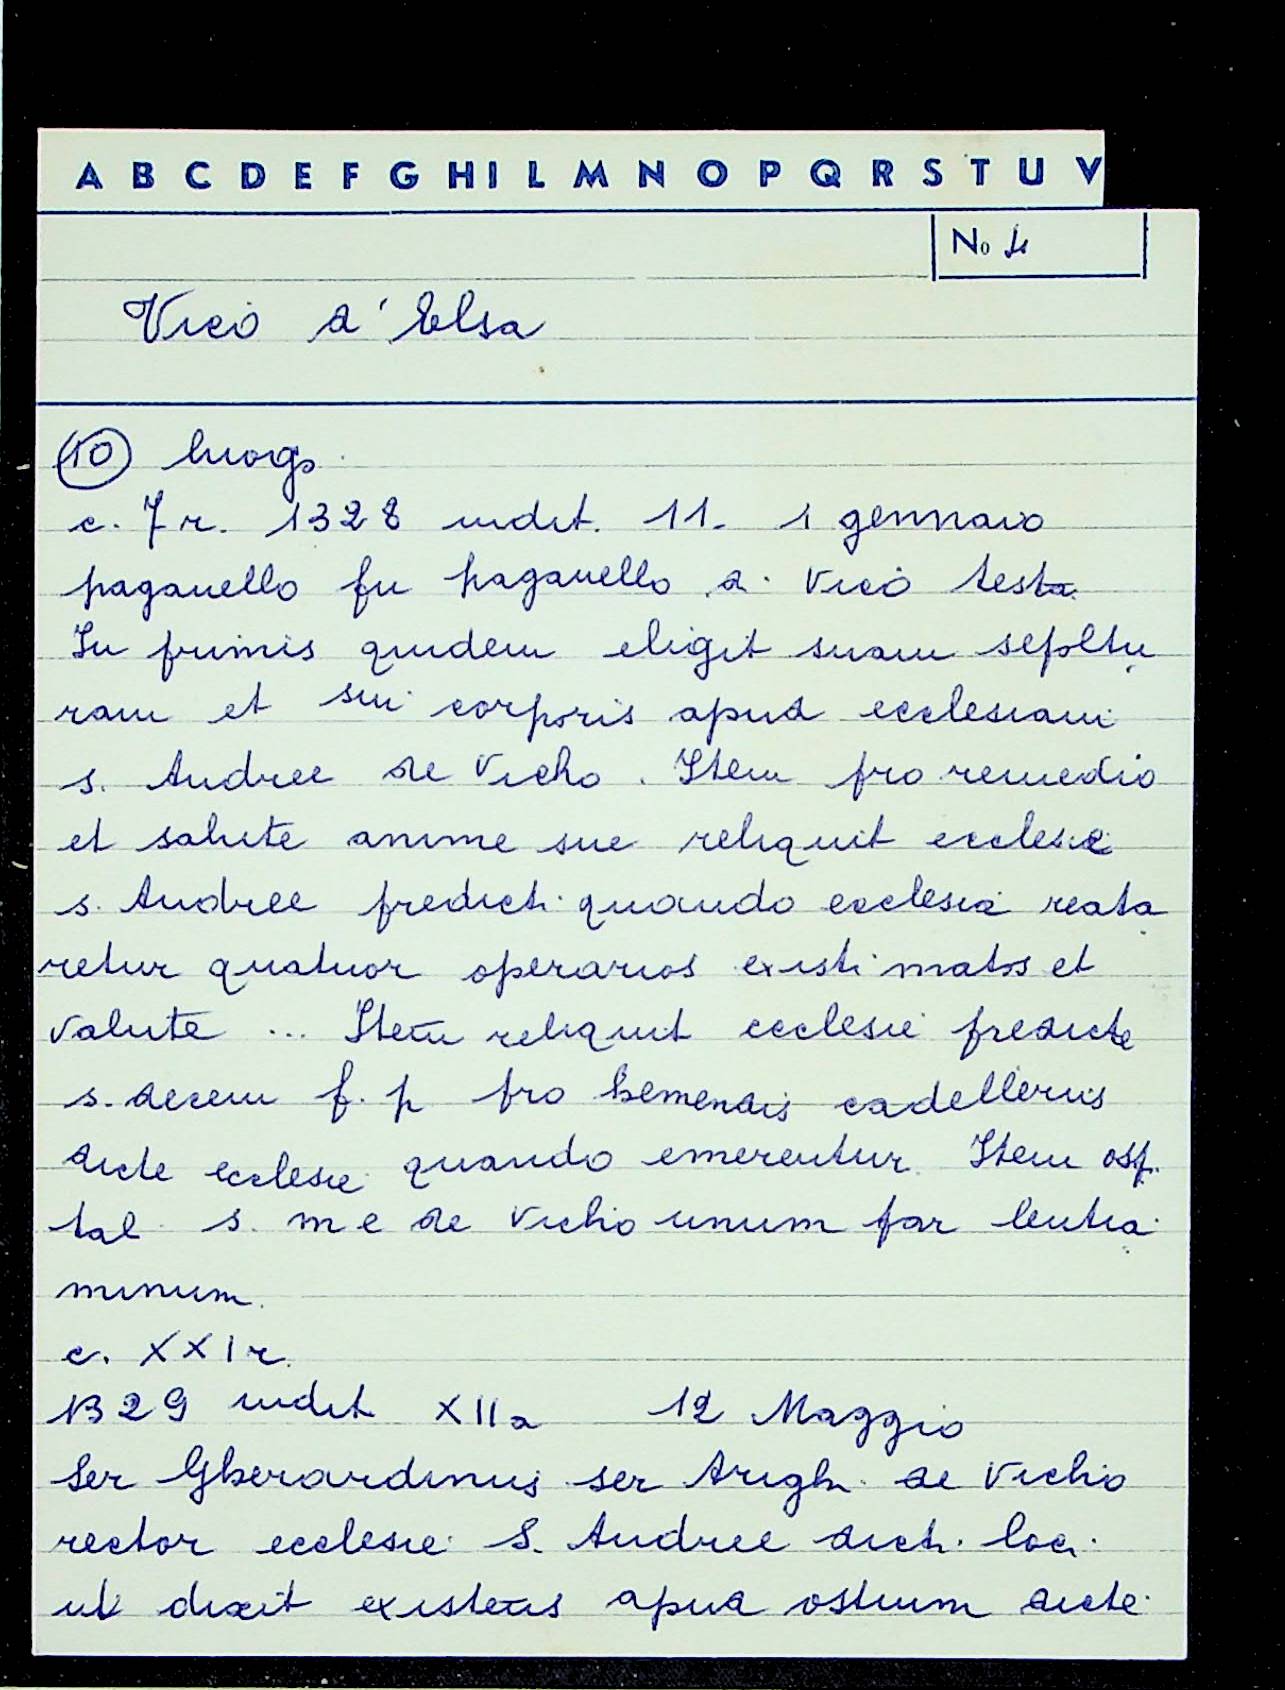 A B C D E F G H I L M N O P Q R S T U V
No 4
Vico d'Elsa
10 luogo
c. 7 r. 1328 indit. 11. 1 gennaio
paganello fu paganello d. Vico testa
In primis quidem eligit suam sepoltu
ram et sui corporis apud ecclesiam
s. Andree de Vicho. Item pro remedio
et salute anime sue reliquit ecclesie
s. Andree predicti quando ecclesia reata
retur quatuor operarios existimatos et
valute ... Item reliquit ecclesie predicte
s. decem f. p pro emendis cadelleriis
dicte ecclesie quando emerentur. Item osp.
tal s. m e de Vicho unum par lentia
minum.
c. XXI r.
1329 indit XIIa 12 Maggio
Ser Gherardinus ser Arigh. de Vicho
rector ecclesie S. Andree dicti loci
ut dixit existens apud ostium dicte